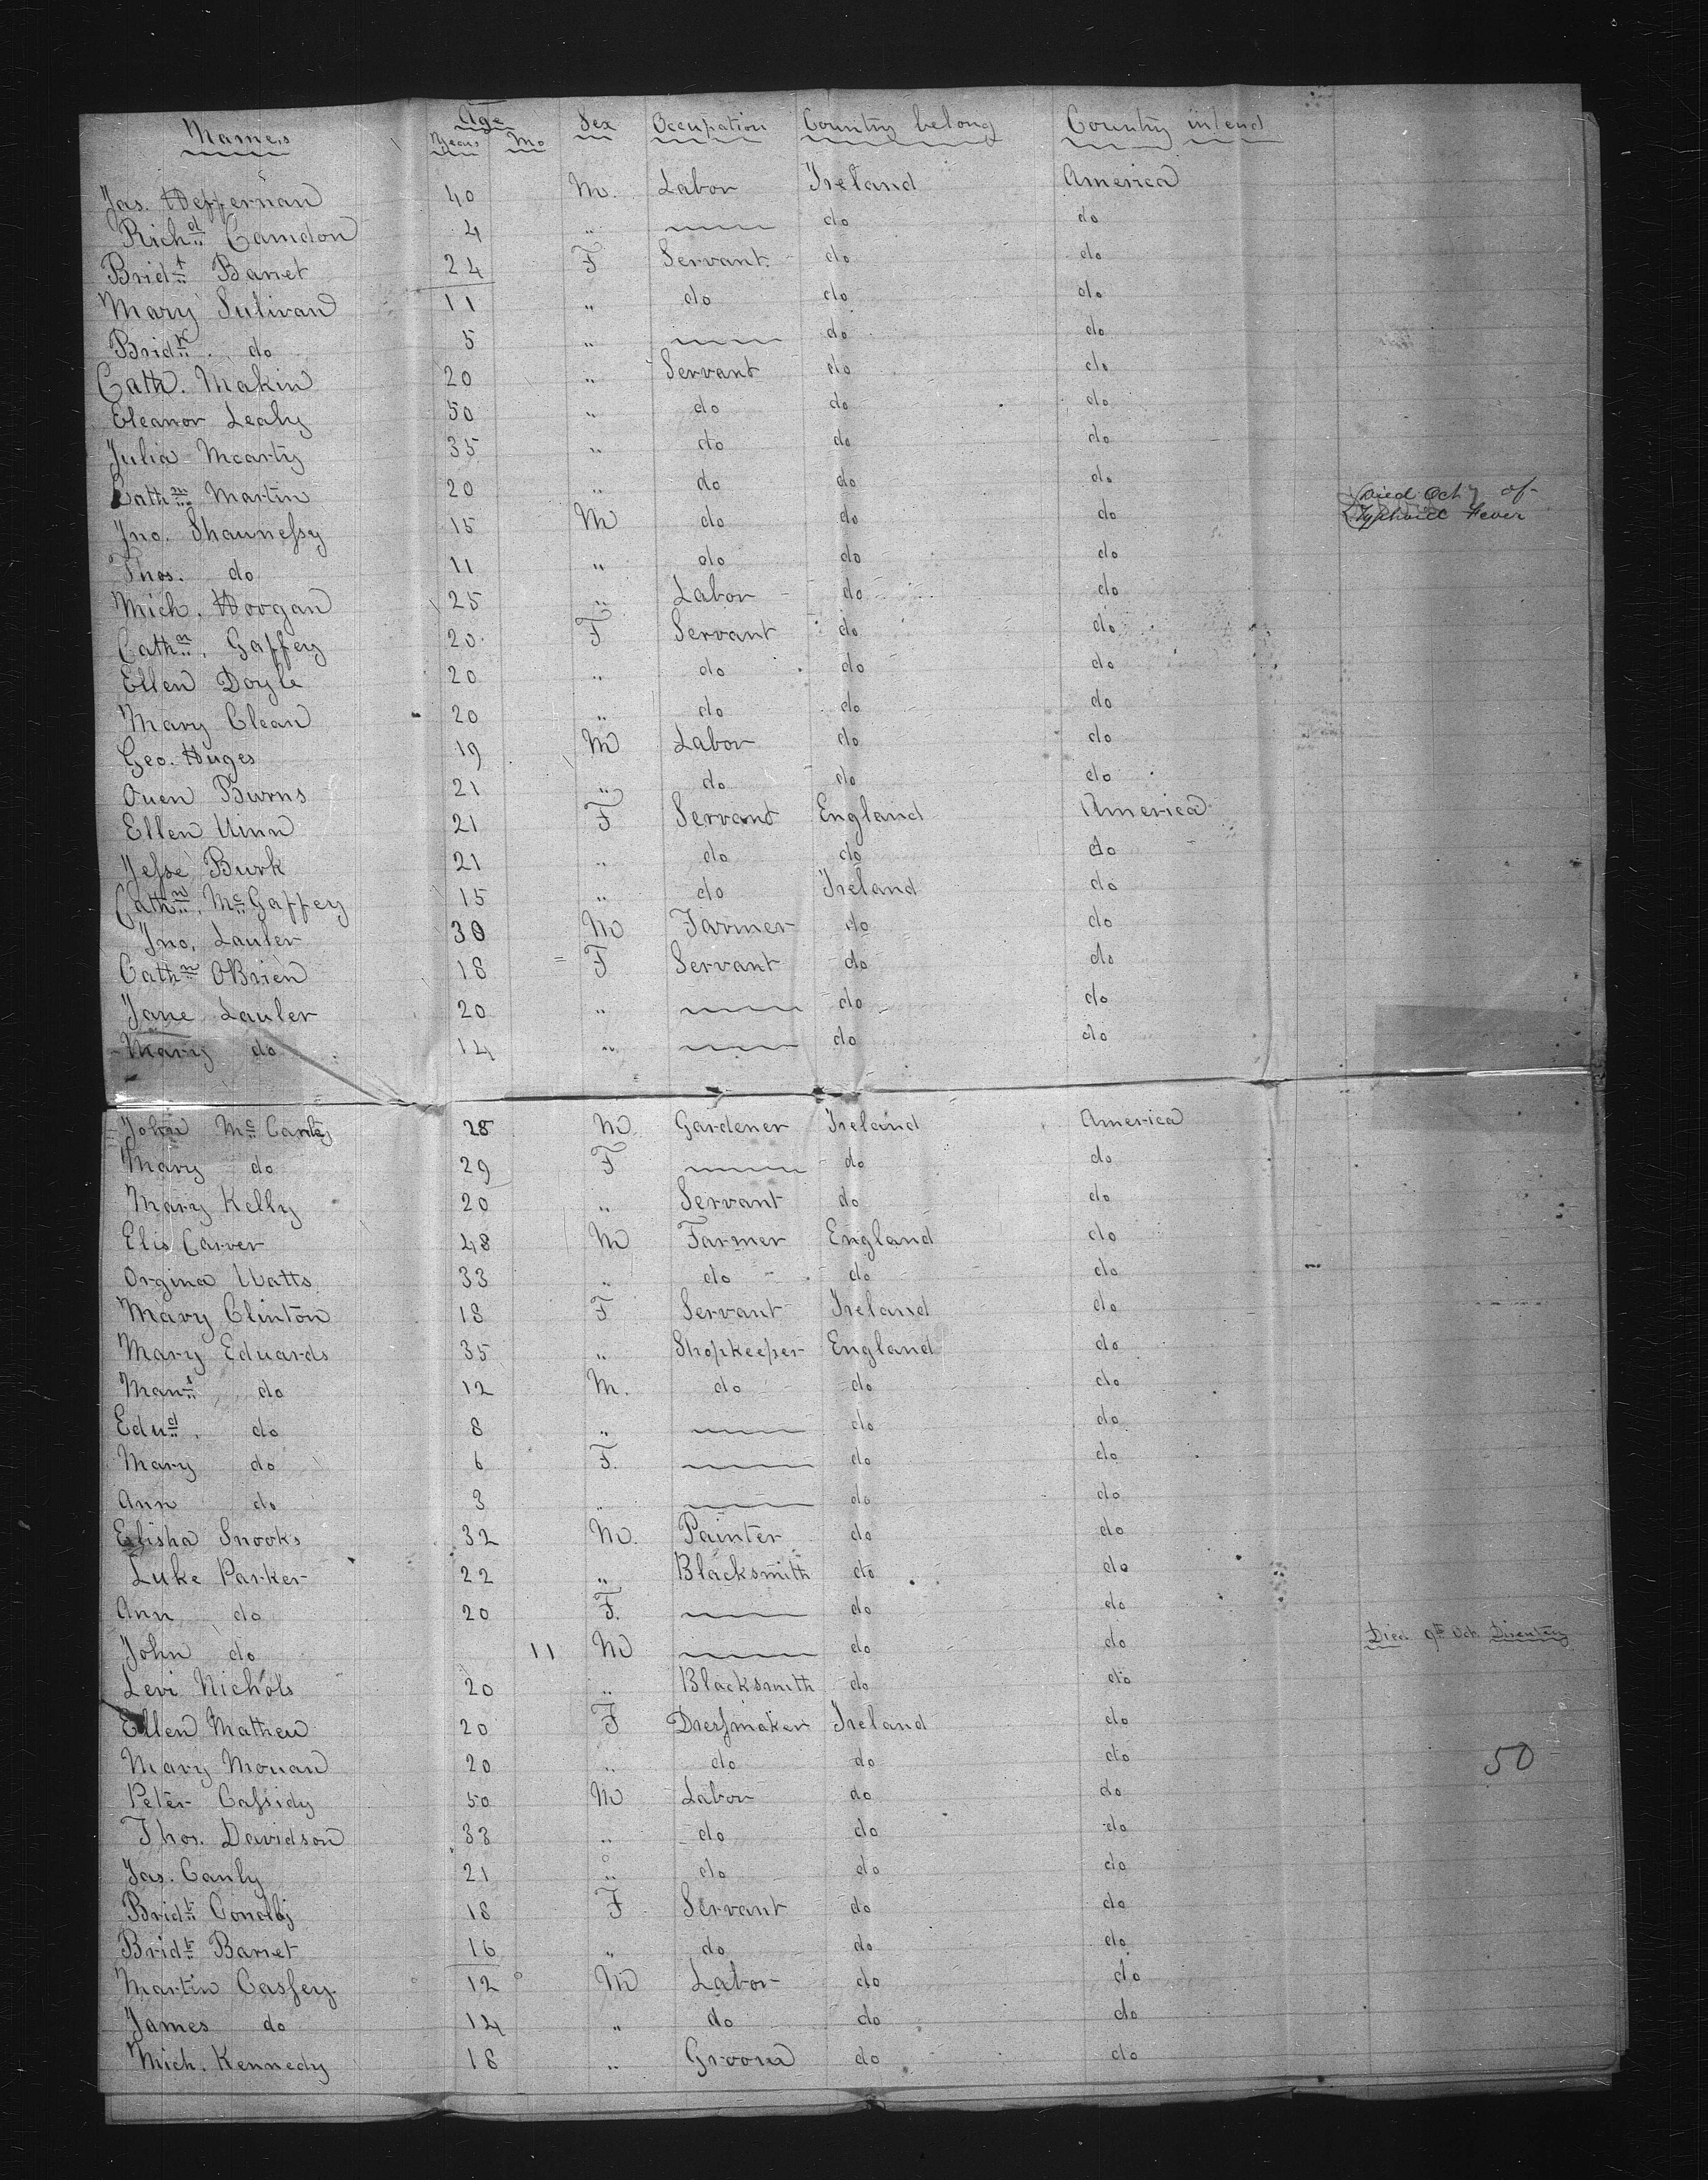 Names Age Sex Occupation Country belong Country intend
Years Mo
Jas. Heffernan 40 M. Labor Ireland America
Richd Camdon 4 " —— do do
Bridt Barret 24 F Servant do do
Mary Sulivan 11 " do do do
Bridt. do 5 " —— do do
Cath. Makin 20 " Servant do do
Eleanor Leahy 50 " do do do
Julia Mcarty 35 " do do do
Cathn Martin 20 " do do do Died Oct 7 of
Jno. Shaunessy 15 M do do do Typhoid Fever
Thos. do 11 " do do do
Mich. Hoogan 25 " Labor do do
Cathn. Gaffey 20 F Servant do do
Ellen Doyle 20 " do do do
Mary Clean 20 " do do do
Geo. Huges 19 M Labor do do
Ouen Burns 21 " do do do
Ellen Uinn 21 F Servant England America
Jesse Burk 21 " do do do
Cathn. McGaffey 15 " do Ireland do
Jno. Lauler 30 M Farmer do do
Cathn OBrien 18 F Servant do do
Jane Lauler 20 " —— do do
Mary do 14 " —— do do
John Mc 28 M Gardener Ireland America
Mary do 29 F —— do do
Mary Kelly 20 " Servant do do
Elis Carver 48 M Farmer England do
Orgina Watts 33 " do do do
Mary Clinton 18 F Servant Ireland do
Mary Eduards 35 " Shopkeeper England do
do 12 M. do do do
Edud. do 8 " —— do do
Mary do 6 F. —— do do
Ann do 3 " —— do do
Elisha Snooks 32 M. Painter do do
Luke Parker 22 " Blacksmith do do
Ann do 20 F. —— do do
John do 11 M —— do do Died 9th Oct. Disentry
Levi Nichols 20 " Blacksmith do do
Ellen Matheu 20 F Dressmaker Ireland do
Mary Mouan 20 " do do do 50
Peter Cassidy 50 M Labor do do
Thos. Davidson 33 " do do do
Jas. Canly 21 " do do do
Bridt 18 F Servant do do
Bridt Barret 16 " do do do
Martin Casfey 12 M Labor do do
James do 14 " do do do
Mich. Kennedy 18 " Groom do do